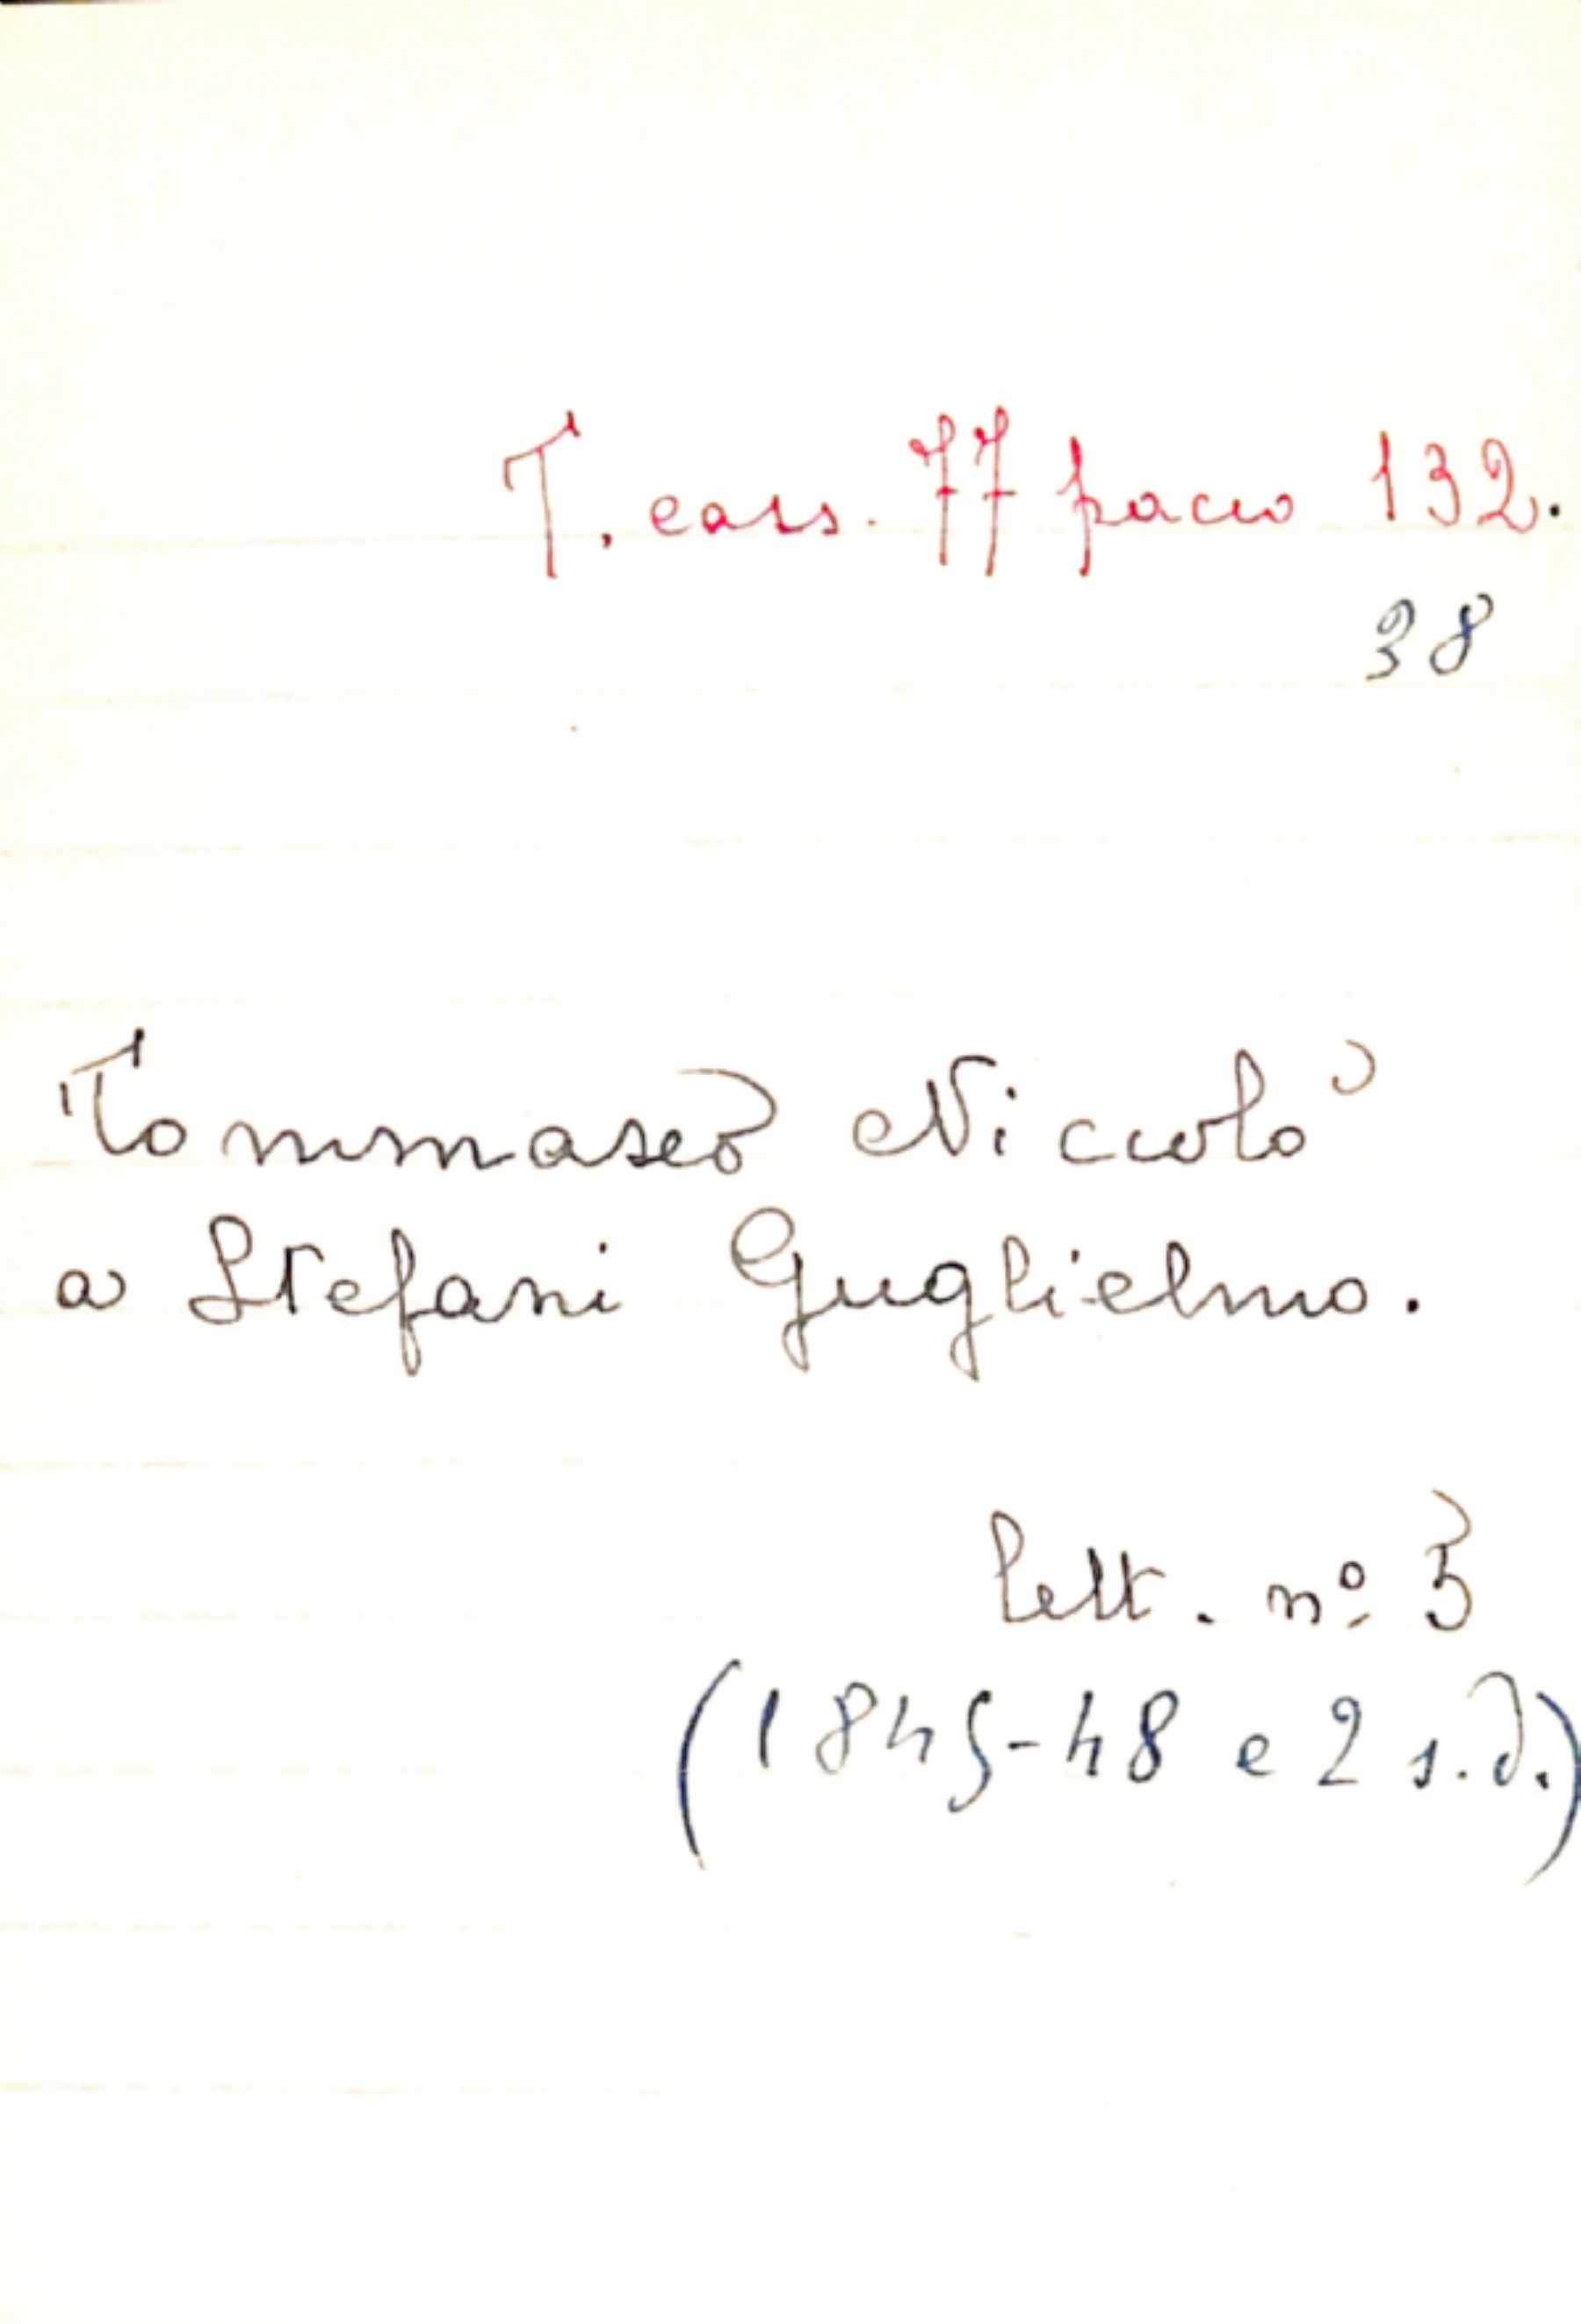 T. cass. 77 pacco 132.
38
Tommaseo Niccolò
a Stefani Guglielmo.
lett. nº 5
(1845-48 e 2 s.d.)